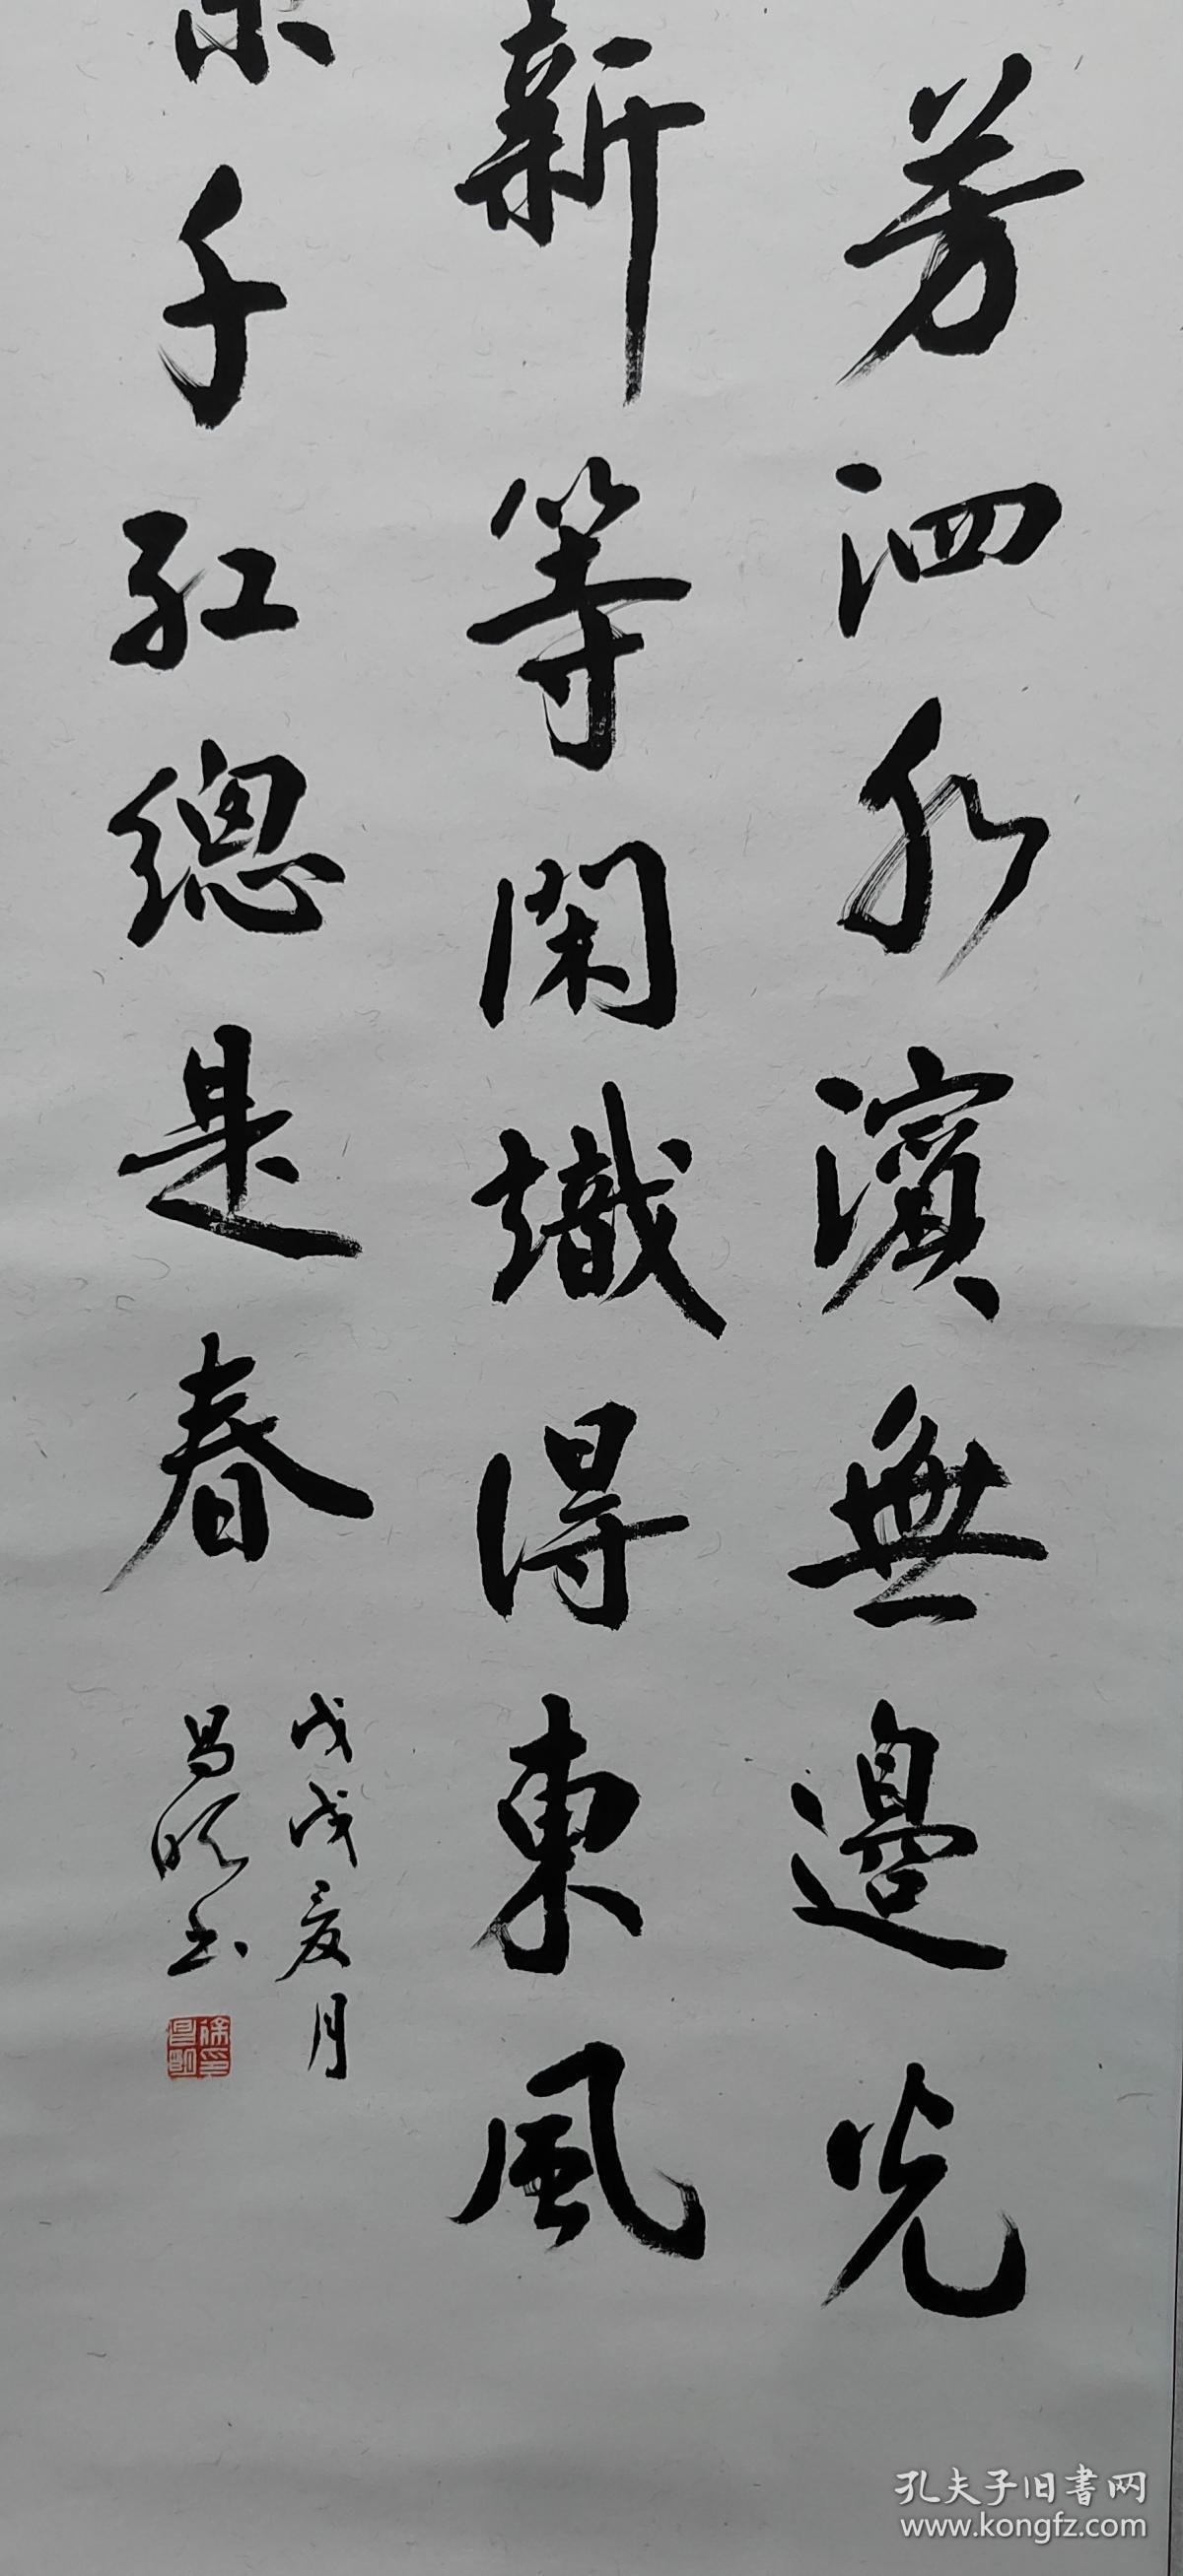 芳泗水濱無邊光
新等閑識得東風
千紅總是春
戊戌夏月
昌明書
孔夫子旧書网
www.kongfz.com